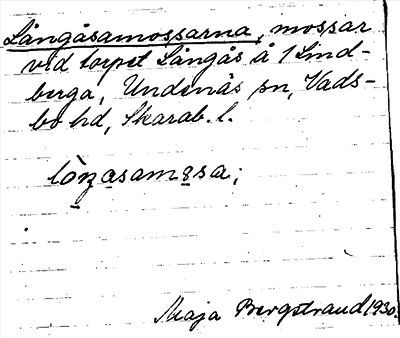 Långåsamossarna, mossar
vid torpet Långås å 1 Lind-
berga, Undenäs sn, Vads-
bo hd, Skarab. l.
Maja Bergstrand 1930.